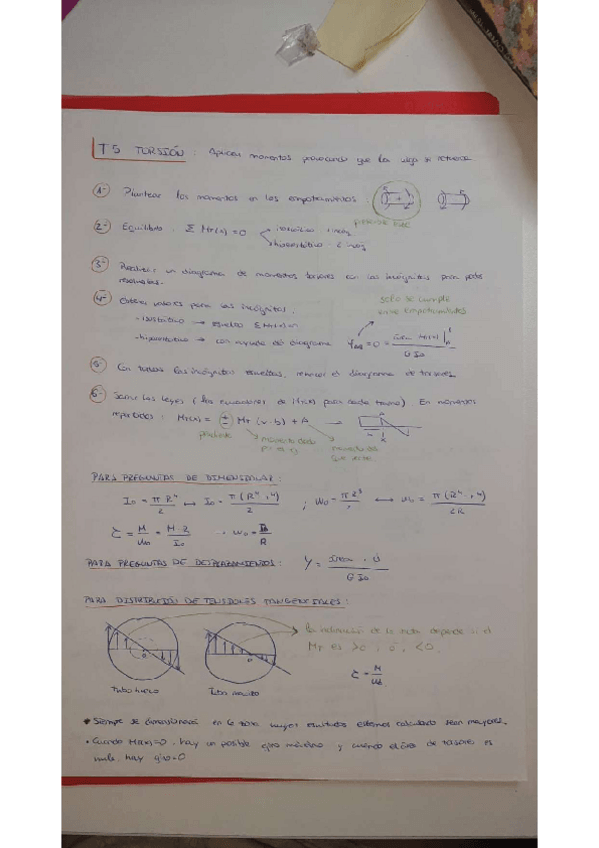 T5 TORSIÓN: Aplicar momentos provocando que la viga se retuerza
1- Plantear los momentos en los empotramientos:
2- Equilibrio: Σ MT(x) = 0
isostático
hiperestático
3- Realizar un diagrama de momentos torsores con las incógnitas para poder
resolverlas.
4- Obtener valores para las incógnitas.
solo se cumple
entre empotramientos
- isostático → resuelvo ΣMT(x)=0
- hiperestático → con ayuda del diagrama φAB = 0 = Área MT(x) / G I0
5- Con todas las incógnitas resueltas, rehacer el diagrama de torsores.
6- Sacar las leyes (las ecuaciones de MT(x) para cada tramo) En momentos
repartidos: MT(x) = ± MT (x-b) + A →
pendiente
momento dado
momento
PARA PREGUNTAS DE DIMENSIONAR:
I0 = πR⁴/2 ↔ I0 = π(R⁴-r⁴)/2 ; W0 = πR³/2 ↔ W0 = π(R⁴-r⁴)/2R
τ = M/W0 = M·R/I0 · W0 = I0/R
PARA PREGUNTAS DE DESPLAZAMIENTOS: φ = Área / G I0
PARA DISTRIBUCIÓN DE TENSIONES TANGENCIALES:
La inclinación de la recta depende si el
MT es >0 ó <0.
τ = M/W0
Tubo hueco
Tubo macizo
• Siempre se dimensionará en la zona cuyos esfuerzos estemos calculando sean mayores.
• Cuando MT(x)=0, hay un posible giro máximo y cuando el área de torsores es
nula, hay giro=0